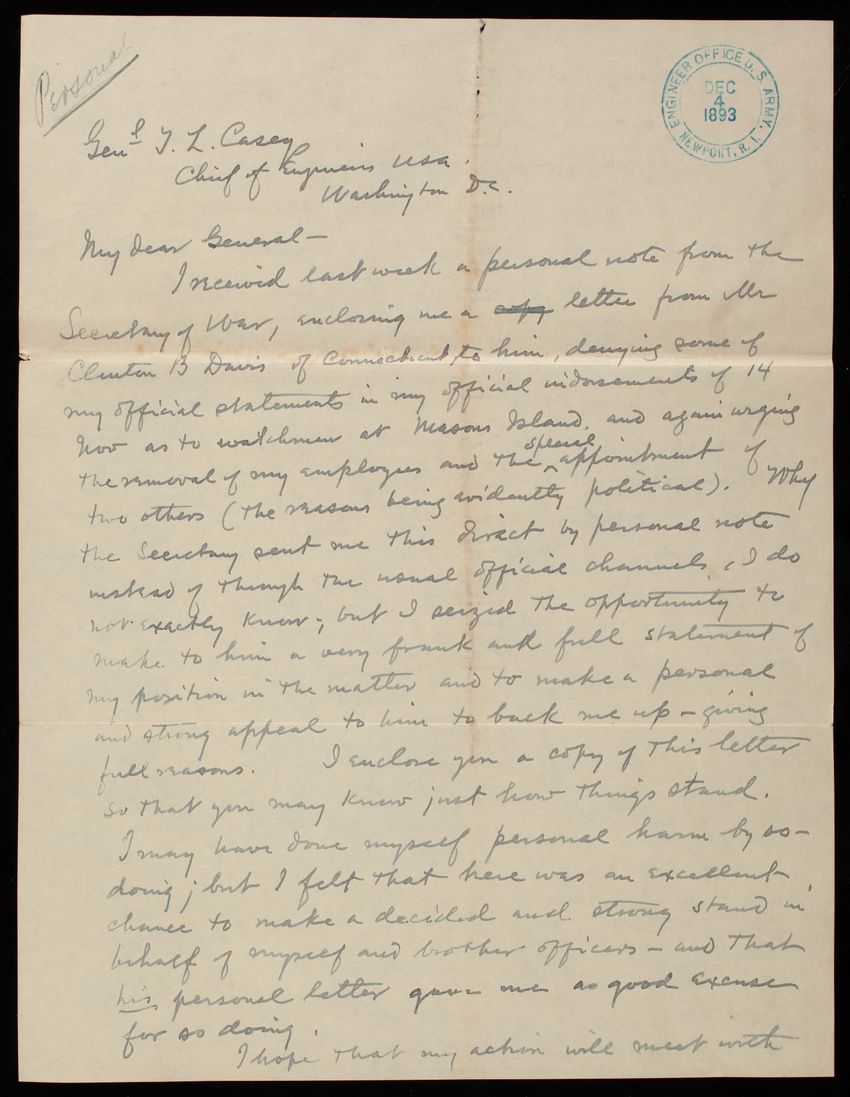 Personal
ENGINEER OFFICE U. S. ARMY,
DEC
4
1893
NEWPORT, R. I.
Genl T. L. Casey
Chief of Engineers USA.
Washington D.C.
My dear General—
I received last week a personal note from the
Secretary of War, enclosing me a copy letter from Mr
Clinton B Davis of Connecticut, to him, denying some of
my official statements in my official indorsements of 14
Nov as to watchmen at Masons Island, and again urging
the removal of my employees and the special appointment of
two others (the reasons being evidently political). Why
the Secretary sent me this direct by personal note
instead of through the usual official channels, I do
not exactly know; but I seized the opportunity to
make to him a very frank and full statement of
my position in the matter and to make a personal
and strong appeal to him to back me up — giving
full reasons. I enclose you a copy of this letter
so that you may know just how things stand.
I may have done myself personal harm by so-
doing; but I felt that here was an excellent
chance to make a decided and strong stand in
behalf of myself and brother officers — and that
his personal letter gave me as good excuse
for so doing.
I hope that my action will meet with